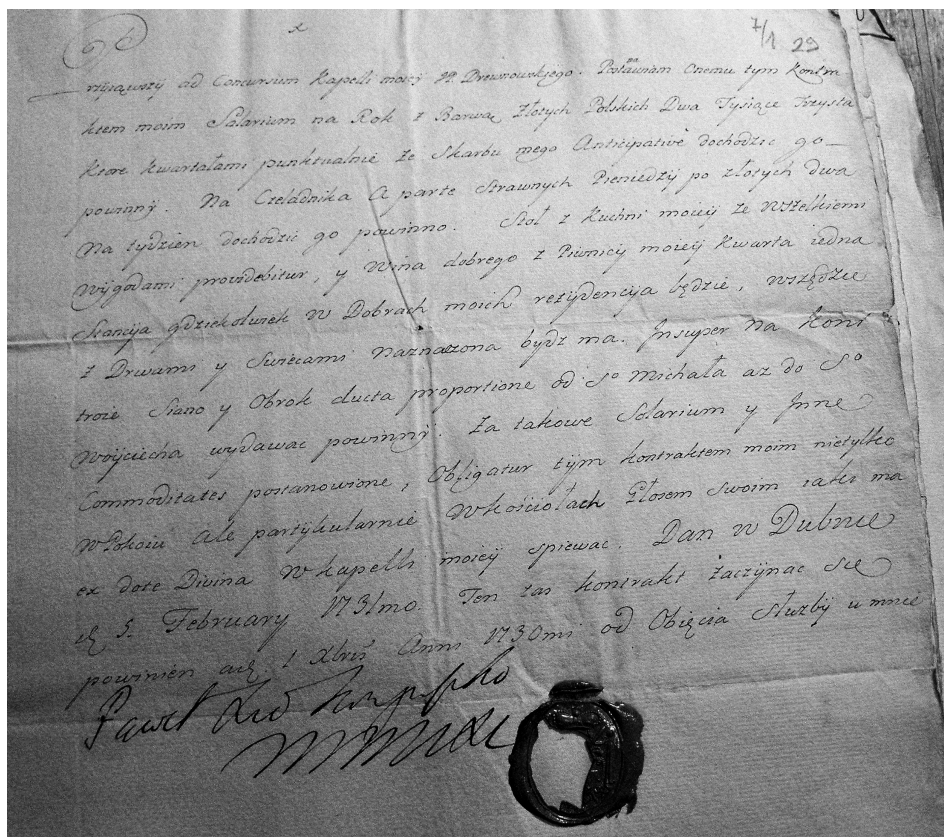 7/1 29
x
rzyiąwszy ad Concursum Kapelli moiey JP. Drewnowskiego. Postawiam Onemu tym kontra
ktem moim Salarium na Rok z Barwą Złotych Polskich Dwa Tysiące Trzysta
Ktore kwartałami punktualnie ze Skarbu mego Anticipativè dochodzic go
powinny. Na Czeladnika a parte Strawnych Pieniedzy po złotych dwa
Na tydzien dochodzic go powinno. Stoł z Kuchni moiey ze wszelkiemi
Wygodami providebitur, y Wina dobrego z Piwnicy moiey Kwarta iedna
Stancyja gdziekolwiek w Dobrach moich rezydencyja będzie, wszędzie
z Drwami y Swiecami naznaczona bydz ma. Insuper Na Koni
troie Siano y Obrok ducta proportione od So Michała az do So
Woyciecha wydawac powinny. Za takowe Salarium y Inne
Commoditates postanowione, Obligatur tym kontraktem moim nietylko
w Pokoiu ale partykularnie w kościołach Głosem swoim iaki ma
ex dote Divina w kapelli moiey spiewac. Dan w Dubnie
d 5. February 1731mo. Ten zas kontrakt zaczynac się
powinien a d 1 Xbris Anni 1730mi od Obięcia Słuzby u mnie
Paweł